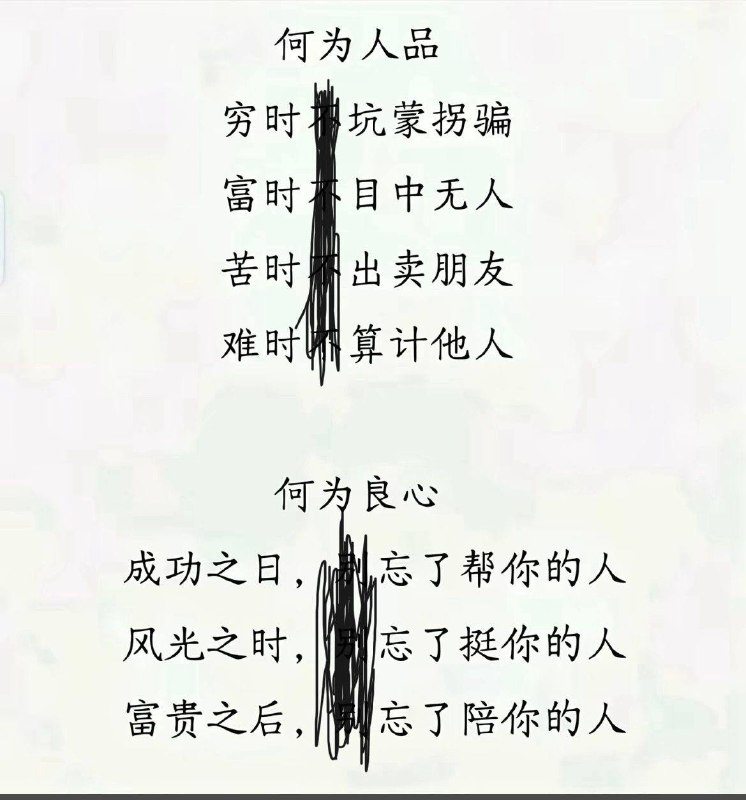 何为人品
穷时不坑蒙拐骗
富时不目中无人
苦时不出卖朋友
难时不算计他人
何为良心
成功之日，别忘了帮你的人
风光之时，别忘了挺你的人
富贵之后，别忘了陪你的人